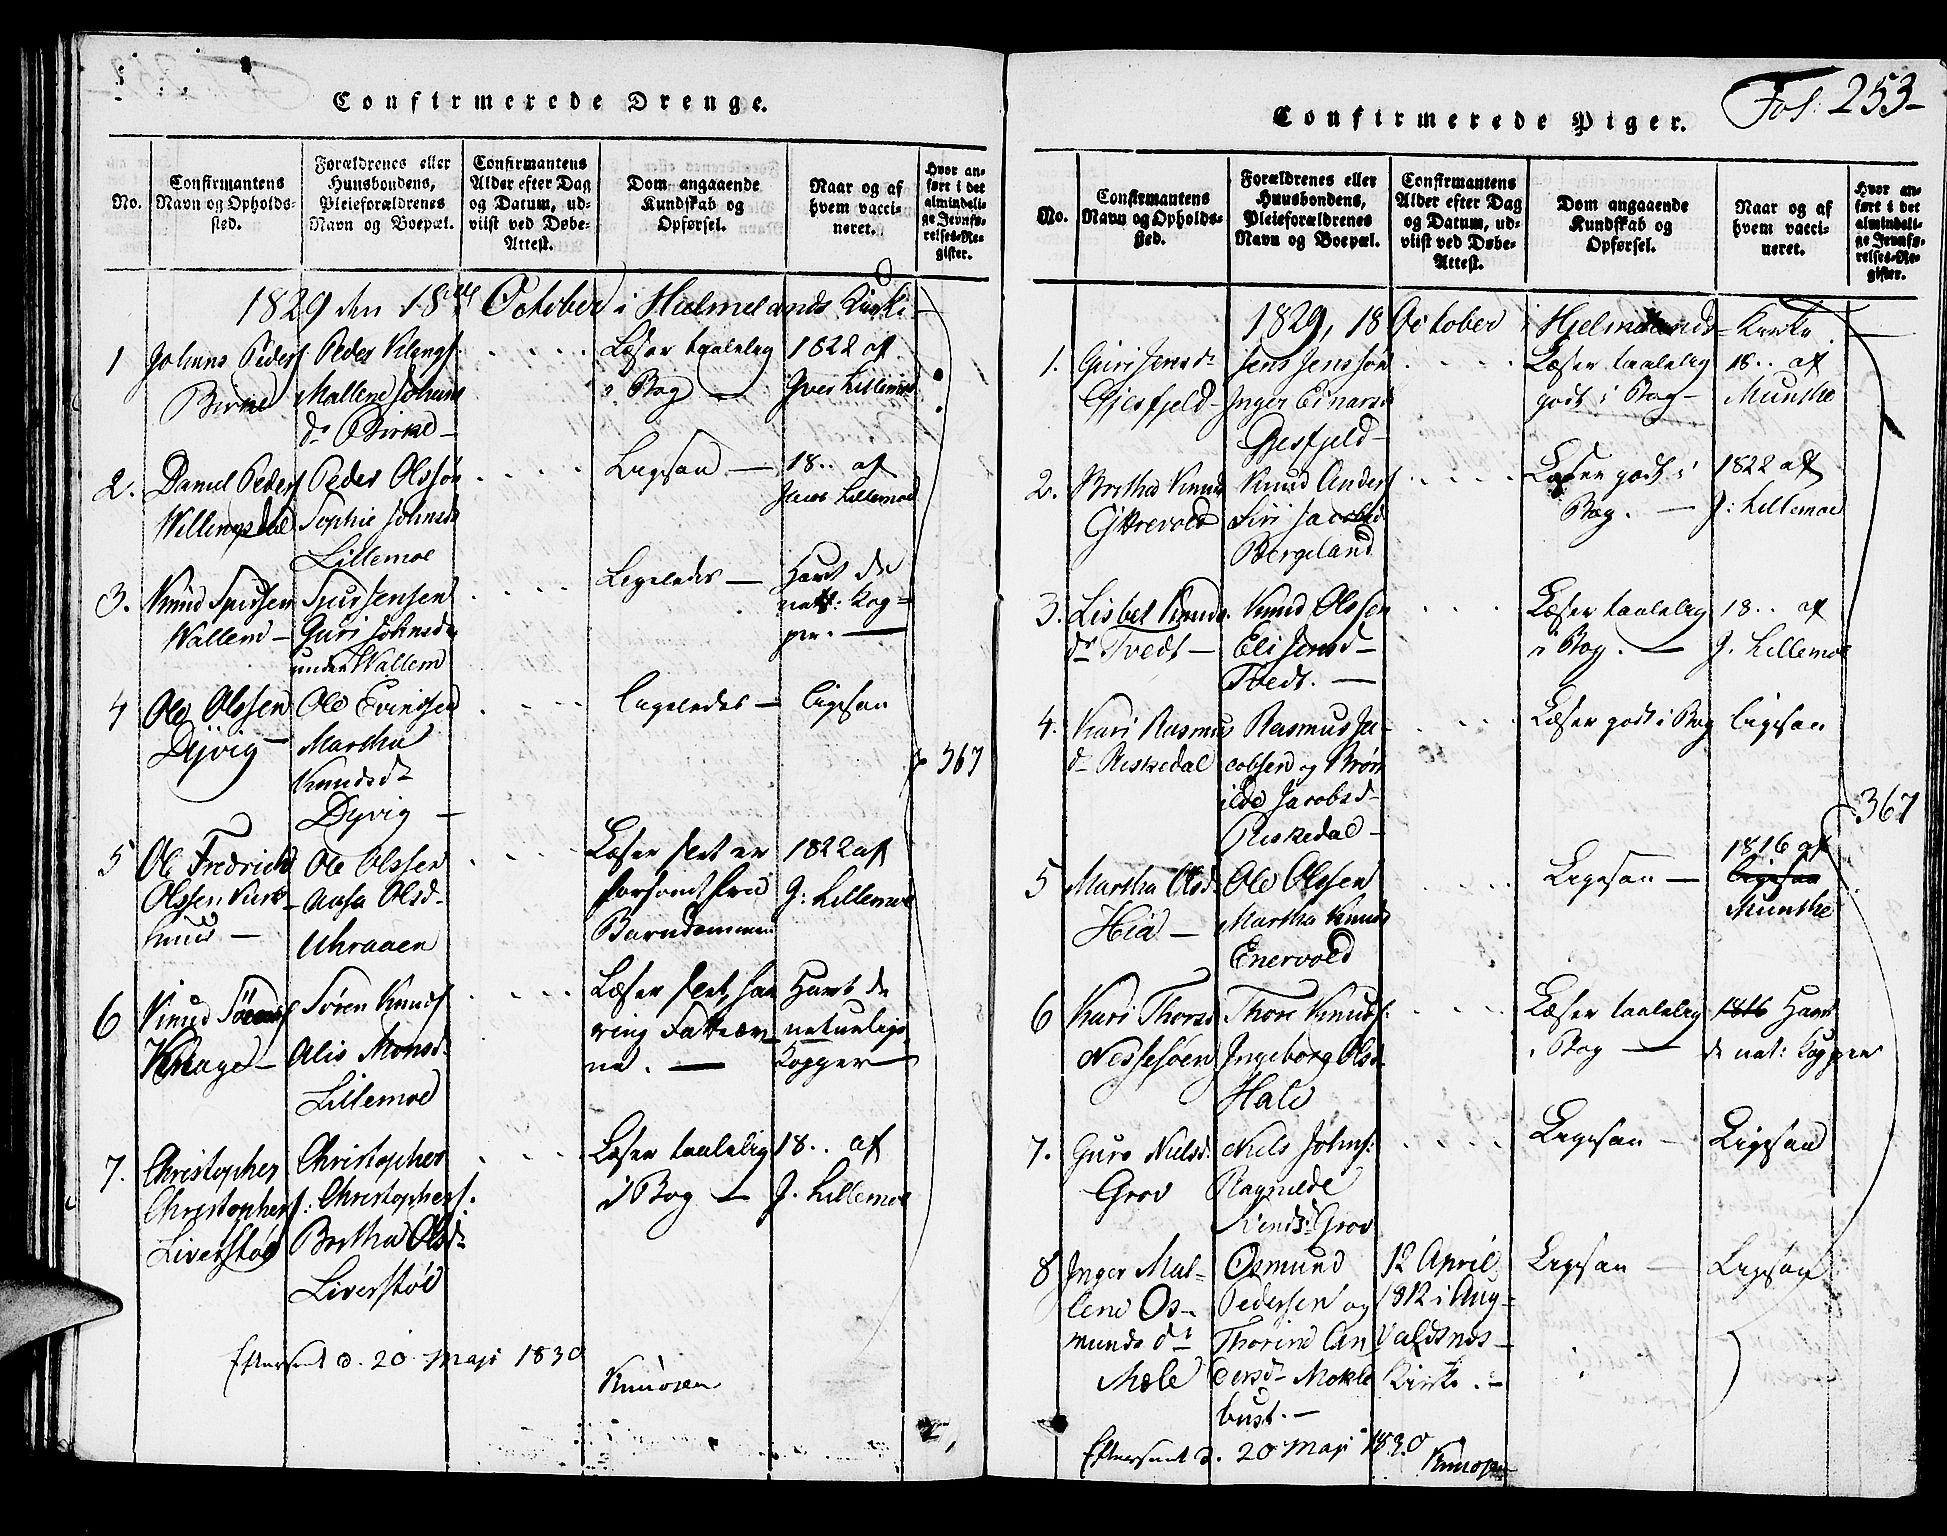 Confirmerede Drenge.
No.
Confirmantens
Navn og Opholds-
sted.
Forældrenes eller
Huusbondens,
Pleieforældrenes
Navn og Boepæl.
Confirmantens
Alder efter Dag
og Datum, ud-
viist ved Døbe-
Attest.
Dom angaaende
Kundskab og
Opførsel.
Naar og af
hvem vacci-
neret.
Hvor an-
ført i det
almindeli-
ge Jevnfø-
relses-Re-
gister.
1829 den 18de October i Hielmelands Kirke
1
Johans Peders
Birke
Peder
Mallene Johans
dr Birke
Læser taalelig
i Bog
1822 af
Lillemoe
2.
Daniel Peders
Willengsdal
Peder Olssøn
Sophie Johnsd
Lillemoe
Ligesaa
18.. af
Jacob Lillemoe
3.
Knud Sjursen
Wallem
Sjur Jensen
Guri Johnsdr
under Wallem
Ligeledes
Havt de
nat: Kop-
per.
4
Ole Olssen
Dyvig
Ole Evindsen
Martha
Knudsdr
Dyvig
Ligeledes
Ligesaa
367
5
Ole Fredrich
Olssen
Ole Olssen
Aasa Olsd
Uhraaen
Læser slet er
forsømt fra
Barndommen
1822 af
J: Lillemoe
6
Knud Sörens
Knage
Søren Knuds
Alis Monsd
Lillemoe
Læser slet, har
ring Fatteæv
ne.
Havt de
naturlige
Kopper
7.
Christopher
Christophers:
Liverstøe
Christopher
Christophers:
Brethe Olsdr
Liverstøe
Læser taalelig
i Bog
18.. af
J. Lillemoe
Eftersendt d. 20 Maji 1830
Knudsen
Confirmerede Piger.
Fol: 253
No.
Confirmantens
Navn og Opholds-
sted.
Forældrenes eller
Huusbondens,
Pleieforældrenes
Navn og Boepæl.
Confirmantens
Alder efter Dag
og Datum, ud-
viist ved Døbe-
Attest.
Dom angaaende
Kundskab og
Opførsel.
Naar og af
hvem vacci-
neret.
Hvor an-
ført i det
almindeli-
ge Jevnfø-
relses-Re-
gister.
1829, 18 October i Hjelmelands Kirke
1.
Guri Jensdr
Gjesfjeld
Jens Jenssøn
Inger Einarsd
Gjesfjeld
Læser taalelig
godt i Bog
18.. af
Munthe
2.
Bretha Knuds
Knud Anders
Siri Jacobsd
Bergeland
Læser godt i
Bog.
1822 af
J: Lillemoe
3.
Lisbet Knuds
dr Tvedt
Knud Olssen
Eli Jensd
Tvedt.
Læser taalelig
i Bog.
18.. af
J. Lillemoe
4.
Kari Rasmus
dr Riskedal
Rasmus Ja-
cobsen og Brøn
ilde Jacobsd
Riskedal
Læser godt i Bog
Ligesaa
367
5
Martha Olsd
Hia
Ole Olssen
Martha Knuds
Enervold
Ligesaa
1816 af
Ligesaa
Munthe
6
Kari Thorsd
Nessesøen
Thore Knuds:
Ingeborg Olsd
Hale
Læser taalelig
i Bog
1816 Havt
de nat: Kopper
7.
Guro Nielsd
Grov
Niels Johns:
Ragnilde
Grov
Ligesaa
Ligesaa
8
Inger Mal-
lene Os-
munds dr
Mæle
Osmund
Pedersen og
Thorine An
dersdr Mokle
bust.
12 April
1812 i Aug-
valdsnes
Kirke.
Ligesaa
Ligesaa
Eftersendt d. 20 Maji 1830
Knudsen